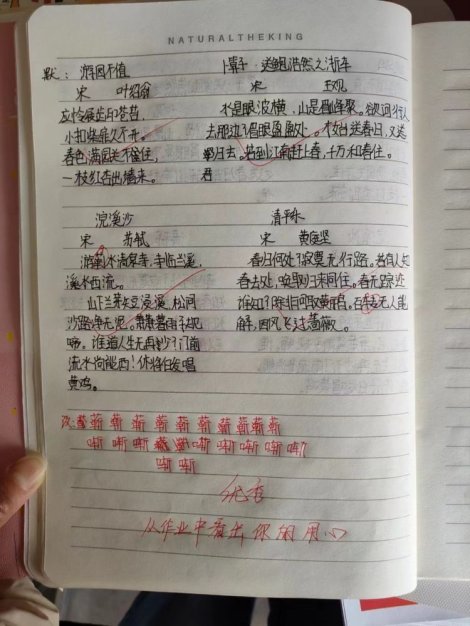 默：游园不值
宋 叶绍翁
应怜屐齿印苍苔，
小扣柴扉久不开。
春色满园关不住，
一枝红杏出墙来。
卜算子·送鲍浩然之浙东
宋 王观
水是眼波横，山是眉峰聚。欲问行人
去那边？眉眼盈盈处。才始送春归，又送
归去。若到江南赶上春，千万和春住。
君
浣溪沙
宋 苏轼
游蕲水清泉寺，寺临兰溪，
溪水西流。
山下兰芽短浸溪，松间
沙路净无泥。萧萧暮雨子规
啼。谁道人生无再少？门前
流水尚能西！休将白发唱
黄鸡。
清平乐
宋 黄庭坚
春归何处？寂寞无行路。若有人知
春去处，唤取归来同住。春无踪迹
谁知？除非问取黄鹂。百啭无人能
解，因风飞过蔷薇。
改：蕲 蕲 蕲 蕲 蕲 蕲 蕲 蕲 蕲
优秀
从作业中看出你的用心
NATURALTHEKING